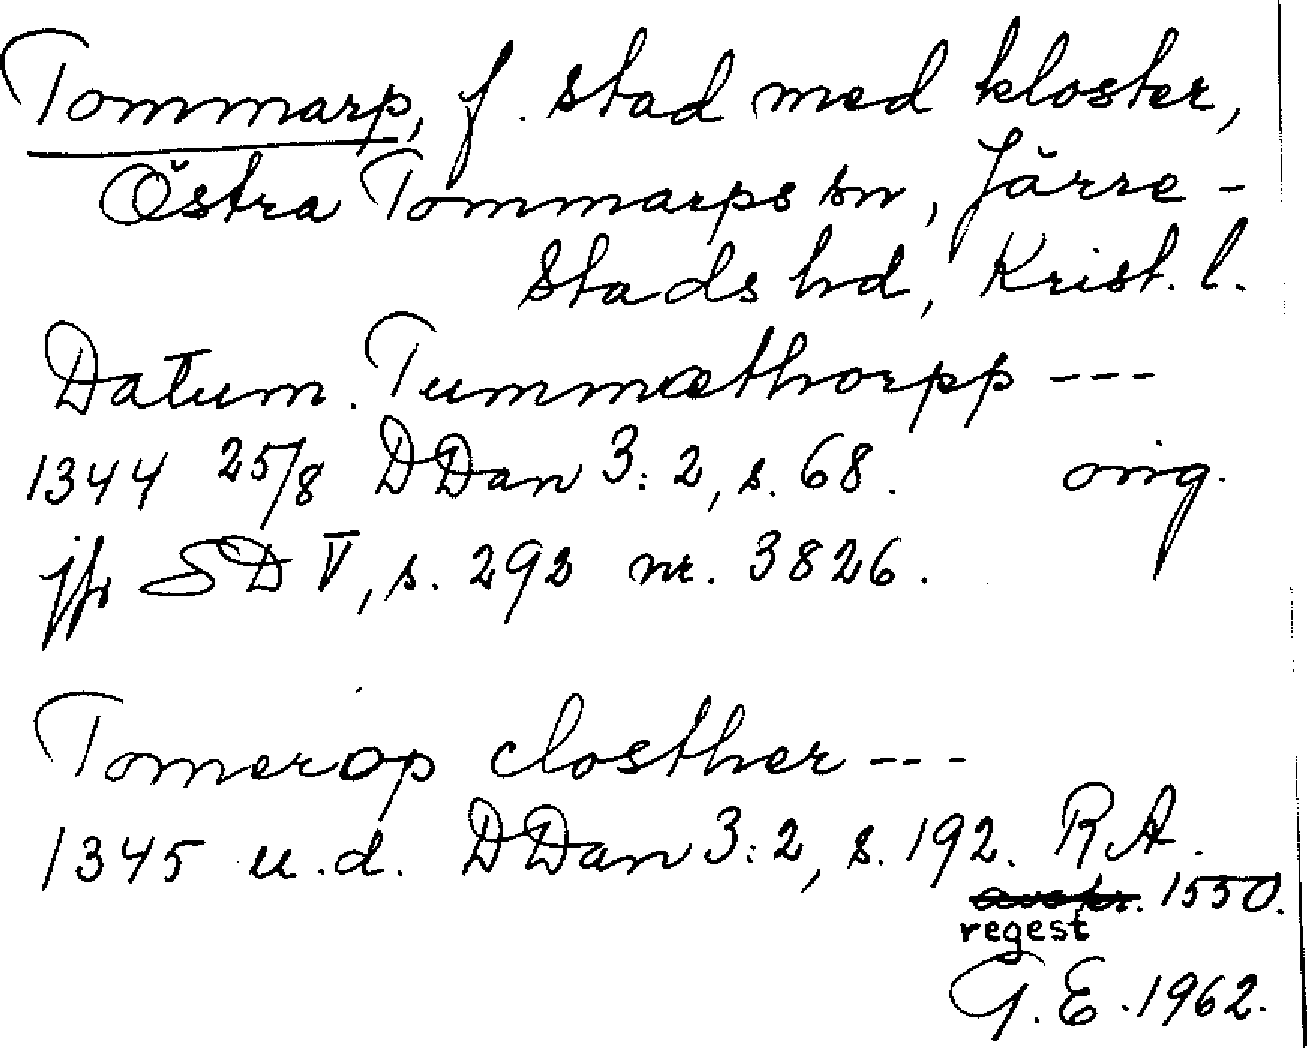 Tommarp, f. stad med kloster,
Östra Tommarps sn, Järre-
stads hd, Krist. l.
Datum. Tummæthorpp ---
1344 25/8 DDan 3:2, s. 68. orig.
jfr SD V, s. 292 nr. 3826.
Tomerop closther ---
1345 u.d. DDan 3:2, s. 192. R.A.
avskr. 1550.
regest
G.E. 1962.